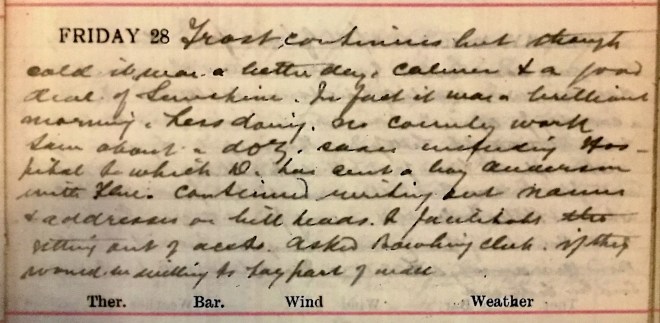 FRIDAY 28 Frost continues but though
cold it was a better day, calmer & a good
deal of Sunshine. In fact it was a brilliant
morning. Less doing. no country work
Saw about a doz. cases including Hos-
pital to which D. has sent a boy Anderson
with Flu. Continued writing out names
& addresses on bill heads to facilitate the
setting out of accts. Asked Bowling Club if they
would be willing to pay part of
Ther. Bar. Wind Weather